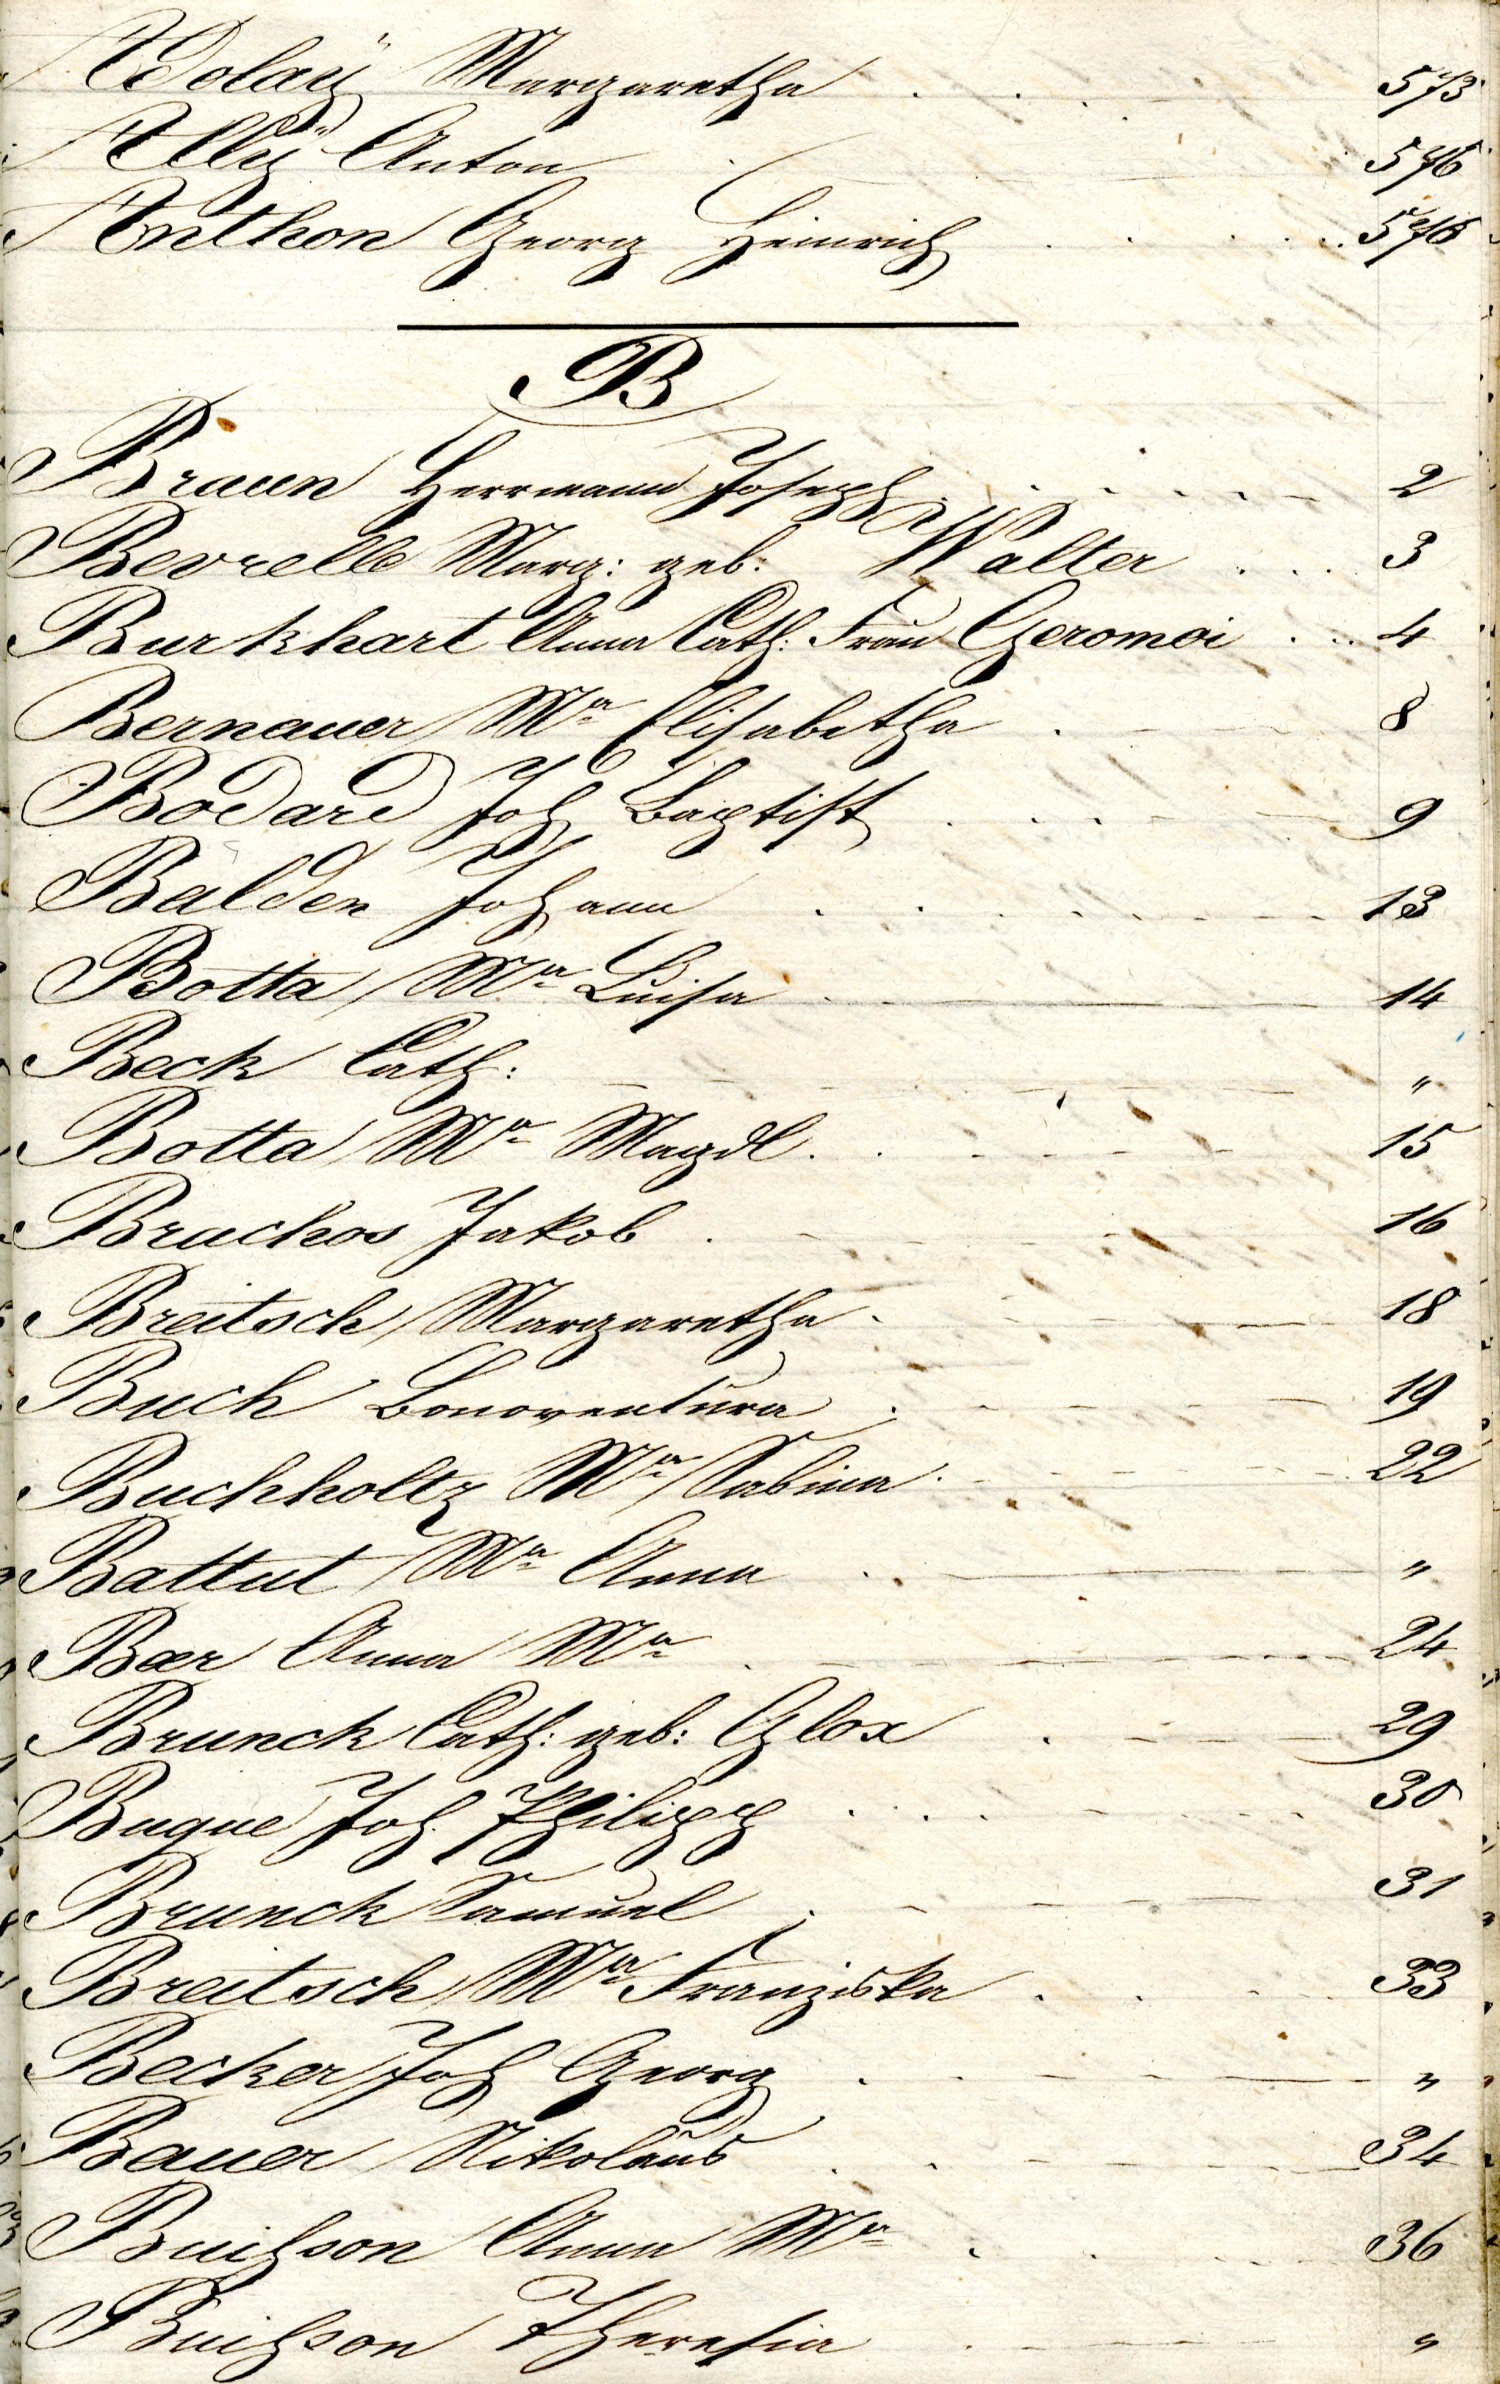 Adolaÿ Margaretha 573
Allÿ Anton 576
Anthon Georg Heinrich 576
B
Braun Herrmann Joseph 2
Bevrelle Marg: geb: Walter 3
Burkhart Anna Cath: Frau Geromoi 4
Bernauer Ma Elisabetha 8
Bodare Joh Baptist 9
Balden Johann 13
Botta Ma Luisa 14
Beck Cath: "
Botta Ma Magdl. 15
Bruchos Jakob 16
Breitsch Margaretha 18
Buch Bonoventura 19
Buchholtz Ma Sabina 22
Battut Ma Anna "
Baer Anna Ma 24
Brunck Cath: geb: Glox 29
Buque Joh. Philipp 30
Brunck Samuel 31
Breitsch Ma Franziska 33
Becker Joh Georg "
Bauer Nikolaus 34
Buißson Anna Ma 36
Buißson Theresia "